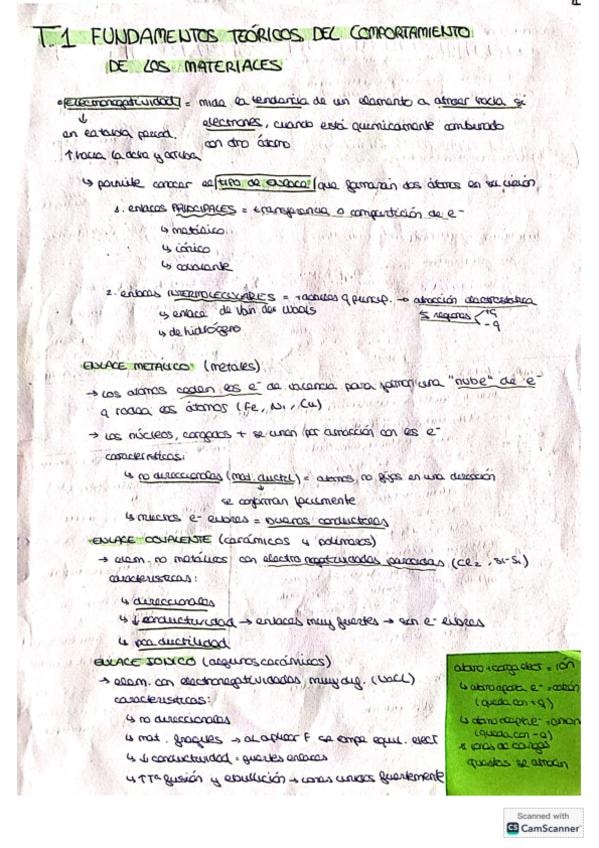 T.1 FUNDAMENTOS TEÓRICOS DEL COMPORTAMIENTO
DE LOS MATERIALES
• Electronegatividad = mide la tendencia de un elemento a atraer hacia sí
↓ electrones, cuando está quimicamente combinado
en la tabla period. con otro átomo
↑ hacia la dcha y arriba
↳ permite conocer el tipo de enlace que formarán dos átomos en su unión
1. enlaces PRINCIPALES = transferencia o compartición de e-
↳ metálico
↳ iónico
↳ covalente
2. enlaces INTERMOLECULARES = + débiles q princip. → atracción electrostática
↳ enlace de Van der Waals
regiones +q
-q
↳ de hidrógeno
ENLACE METÁLICO (metales)
→ Los átomos ceden los e- de valencia para formar una "nube" de e-
q rodea los átomos (Fe, Ni, Cu)
→ Los núcleos, cargados + se unen por atracción con los e-
características:
↳ no direccionales (mat. dúctil) = átomos no fijos en una dirección
↓
se conforman facilmente
↳ muchos e- libres = buenos conductores
ENLACE COVALENTE (cerámicos y polímeros)
→ elem. no metálicos con electronegatividades parecidas (Cl2, Si-Si)
características:
↳ direccionales
↳ ↓ conductividad → enlaces muy fuertes → sin e- libres
↳ poca ductilidad
ENLACE IÓNICO (algunos cerámicos)
→ elem. con electronegatividades muy dif. (NaCl)
características:
↳ no direccionales
↳ mat. frágiles → al aplicar F se rompe equil. elect
↳ ↓ conductividad = fuertes enlaces
↳ ↑Tª fusión y ebullición → iones unidos fuertemente
átomo + carga elect = IÓN
↳ átomo aporta e- = catión
(queda con +q)
↳ átomo acepta e- = anión
(queda con -q)
iones de cargas
opuestas se atraen
Scanned with
CS CamScanner